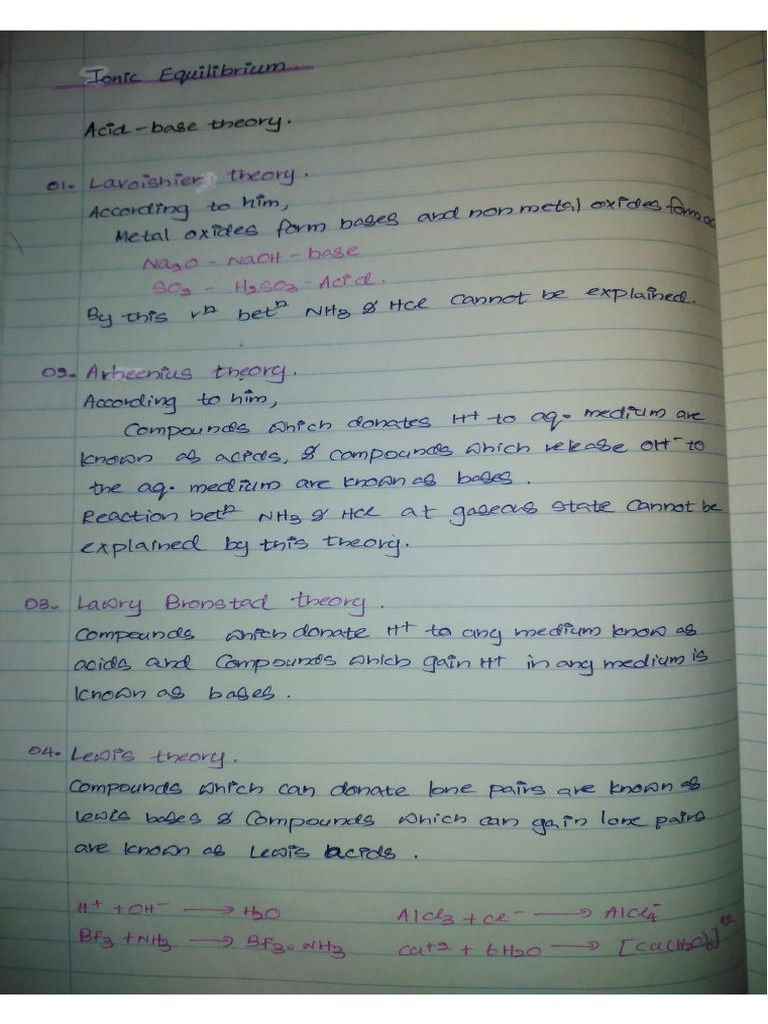 Ionic Equilibrium.
Acid-base theory.
01- Lavoishier theory.
According to him,
Metal oxides form bases and non metal oxides form
Na2O - NaOH - base
SO2 - H2SO3 - Acid.
By this rⁿ betⁿ NH3 & HCl cannot be explained.
02- Arheenius theory.
According to him,
Compounds which donates H+ to aq. medium are
known as acids, & compounds which release OH- to
the aq. medium are known as bases.
Reaction betⁿ NH3 & HCl at gaseous state cannot be
explained by this theory.
03- Lawry Bronstad theory.
Compounds which donate H+ to any medium know as
acids and Compounds which gain H+ in any medium is
known as bases.
04- Lewis theory.
Compounds which can donate lone pairs are known as
lewis bases & Compounds which can gain lone pairs
are known as Lewis acids.
H+ + OH- → H2O AlCl3 + Cl- → AlCl4-
Bf3 + NH3 → Bf3-NH3 Ca+2 + 6H2O → [Ca(H2O)6]+2